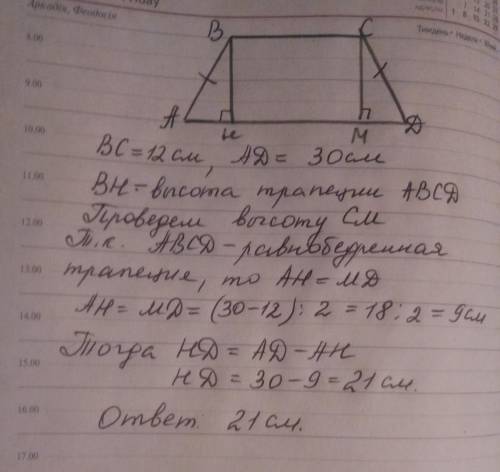 Аркадія, Феодосія
Тиждень • Неделя • We
8.00
9.00
10.00
11.00
12.00
13.00
14.00
15.00
16.00
17.00
B C
A H M D
BC = 12 см, AD = 30 см
BH - высота трапеции ABCD
Проведем высоту CM
Т.к. ABCD - равнобедренная
трапеция, то AH = MD
AH = MD = (30-12) : 2 = 18 : 2 = 9 см
Тогда HD = AD - AH
HD = 30 - 9 = 21 см.
Ответ. 21 см.